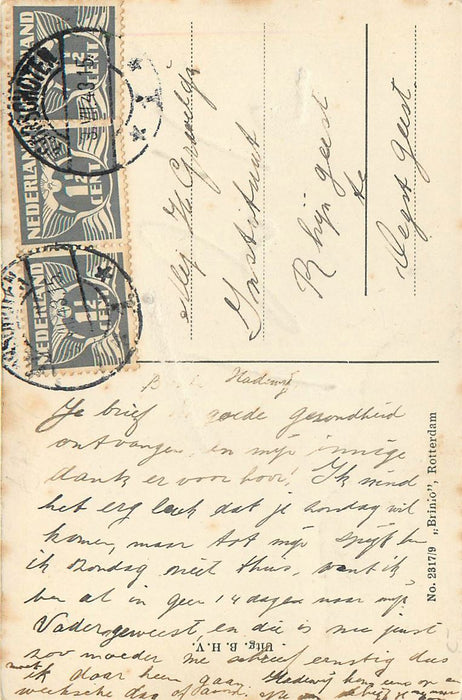 NEDERLAND
1½ CENT
NEDERLAND
1½ CENT
NEDERLAND
1½ CENT
Mej H
Instituut
Rhijngeest
te
Oegstgeest
Hadewij
Je brief in goede gezondheid
ontvangen, en mijn innige
dank er voor hoor! Ik vind
het erg leuk dat je Zondag wil
komen, maar tot mijn spijt ben
ik Zondag niet thuis, want ik
ben al in geen 14 dagen naar mijn
Vader geweest, en die is nu juist
zoo moeder me schreef ernstig dus
moet ik daar heen gaan Hadewij kom
weeksche dag of avond
No. 2317/9 „Brinio", Rotterdam
Uitg. B. H. V.